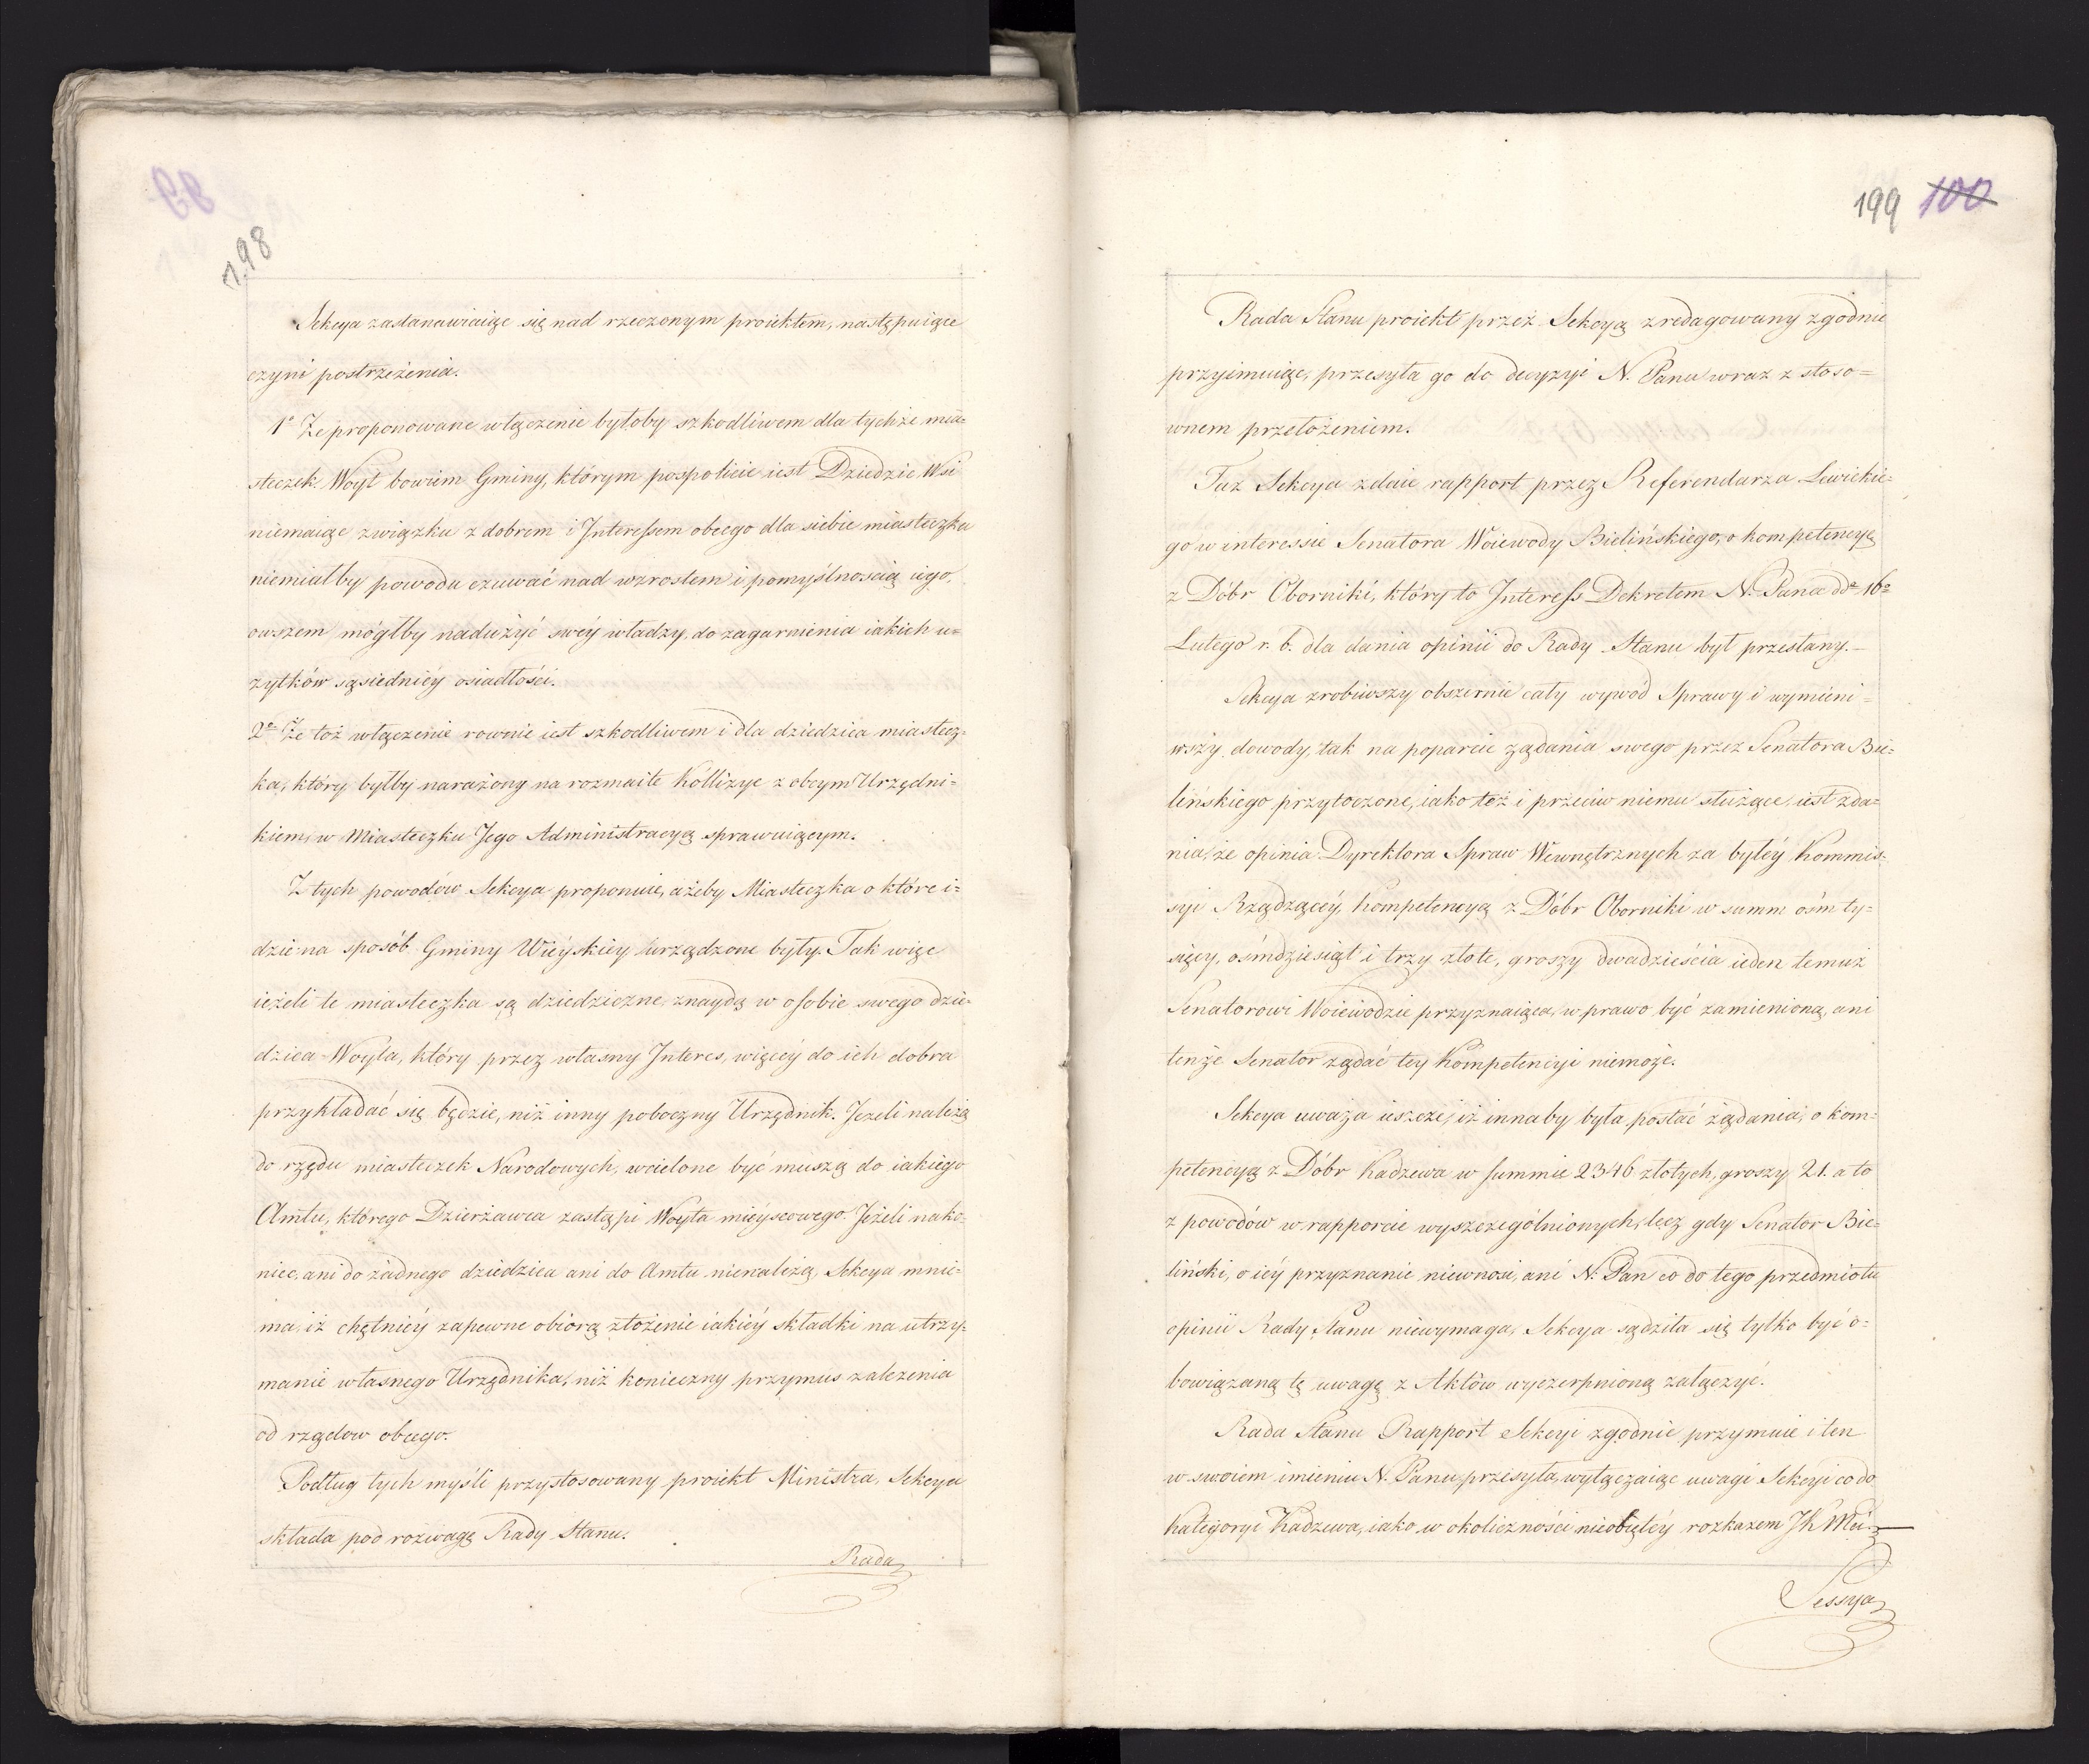 198
Sekcya zastanawiaiąc się nad rzeczonym proiektem, następuiące
czyni postrzeżenia.
1º Że proponowane włączenie byłoby szkodliwem dla tychże mia=
steczek. Woyt bowiem Gminy, którym pospolicie iest Dziedzic Wsi
niemaiąc związku z dobrem i Interessem obcego dla siebie miasteczka
niemiałby powodu czuwać nad wzrostem i pomyślnością iego,
owszem mógłby nadużyć swéy władzy, do zagarnienia iakich u=
żytków sąsiedniéy osiadłości.
2º Że toż włączenie rownie iest szkodliwem i dla dziedzica miastecz=
ka, który byłby narażony na rozmaite Kollizye z obcym Urzędni=
kiem, w Miasteczku Jego Administracyą sprawuiącym.
Z tych powodów Sekcya proponuie, ażeby Miasteczka o które i=
dzie na sposób Gminy Wieyskiey urządzone były. Tak więc
ieżeli te miasteczka są dziedziczne, znaydą w osobie swego dzie=
dzica Woyta, który przez własny Interes, więcéy do ich dobra
przykładać się będzie, niż inny poboczny Urzędnik. Jeżeli należą
do rzędu miasteczek Narodowych, wcielone być muszą do iakiego
Amtu, którego Dzierżawca zastąpi Woyta mieyscowego. Jeżeli nako=
niec, ani do żadnego dziedzica ani do Amtu nienależą, Sekcya mnie=
ma, iż chętniéy zapewne obiorą złożenie iakiéy składki na utrzy=
manie własnego Urzędnika, niż konieczny przymus zależenia
od rządow obcego.
Podług tych myśli przystosowany proiekt Ministra, Sekcya
składa pod rozwagę Rady Stanu.
Rada
199 100
Rada Stanu proiekt przez Sekcyą zredagowany zgodnie
przyimuiąc, przesyła go do decyzyi N. Panu wraz z stoso=
wnem przełożeniem.
Taż Sekcya zdaie rapport przez Referendarza Lewickie=
go w interessie Senatora Woiewody Bielińskiego, o kompetencyą
z Dóbr Oborniki, który to Interess Dekretem N. Pana dd. 16º
Lutego r. b. dla dania opinii do Rady Stanu był przesłany.
Sekcya zrobiwszy obszernie cały wywód Sprawy i wymieni=
wszy dowody, tak na poparcie żądania swego przez Senatora Bie=
lińskiego przytoczone, iako też i przeciw niemu służące, iest zda=
nia, że opinia Dyrektora Spraw Wewnętrznych za byłéy Kommis=
syi Rządzącéy, Kompetencyą z Dóbr Oborniki w summ ośm ty=
sięcy, ośmdziesiąt i trzy złote, groszy dwadzieścia ieden temuż
Senatorowi Woiewodzie przyznaiąca, w prawo być zamienioną, ani
tenże Senator żądać tey Kompetencyi niemoże.
Sekcya uważa ieszcze, iż inna by była postać żądania, o kom=
petencyą z Dóbr Kadzewa w summie 2346 złotych, groszy 21. a to
z powodów w rapporcie wyszczególnionych, lecz gdy Senator Bie=
liński, o iéy przyznanie niewnosi, ani N. Pan co do tego przedmiotu
opinii Rady Stanu niewymaga, Sekcya sądziła się tylko być o=
bowiązaną tę uwagę z Aktów wyczerpnioną załączyć.
Rada Stanu Rapport Sekcyi zgodnie przymuie i ten
w swoiem imieniu N. Panu przesyła, wyłączaiąc uwagi Sekcyi co do
Kategoryi Kadzewa, iako w okoliczności nieobiętéy rozkazem JK Mci.
Sessya